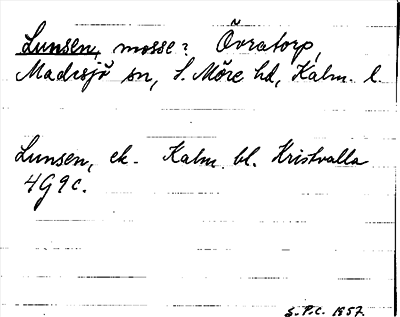 Lunsen, mosse? Övratorp,
Madesjö sn, S. Möre hd, Kalm. l.
Lunsen, ek. Kalm. bl. Kristvalla
4G9c.
S.P.C. 1957